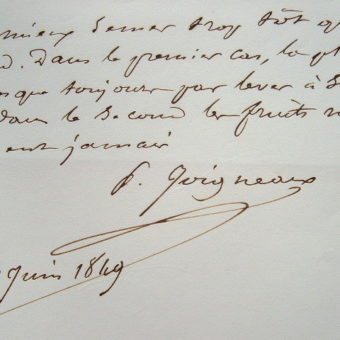 mieux semer trop tôt q
d. Dans le premier cas, la pl
sque toujours par lever à
dans le second les fruits
ent jamais
P. Joigneaux
Juin 1849